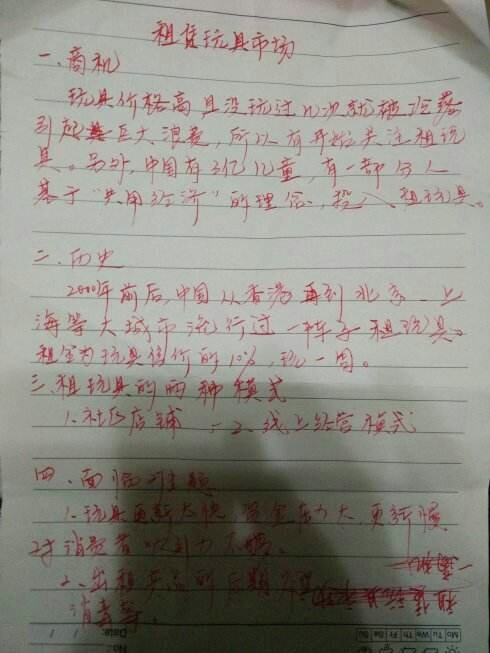 租赁玩具市场
一、商机
玩具价格高且没玩过几次就被冷落
引起巨大浪费，所以有开始关注租玩
具。另外，中国有3亿儿童，有一部分人
基于“共用经济”的理念，投入租玩具。
二、历史
2000年前后，中国从香港再到北京、上
海等大城市流行过一阵子租玩具。
租金为玩具售价的10%，玩一周。
三、租玩具的两种模式
1、社区店铺 2、线上经营模式
四、面临
1、玩具更新太快 资金压力大，更新慢
对消费者吸引力不
2、出租产品的后期
消毒等。
Date:
No:
Mo Tu We Th Fr Sa Su